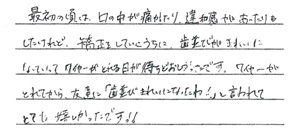 最初の頃は、口の中が痛かたり、違和感があったりも
したけれど、矯正をしていくうちに、歯並びがきれいに
なっていって ワイヤーがとれる日が待ちどおしかったです。ワイヤーが
とれてから、友達に「歯並びきれいになったね!」と言われて
とても嬉しかったです!!